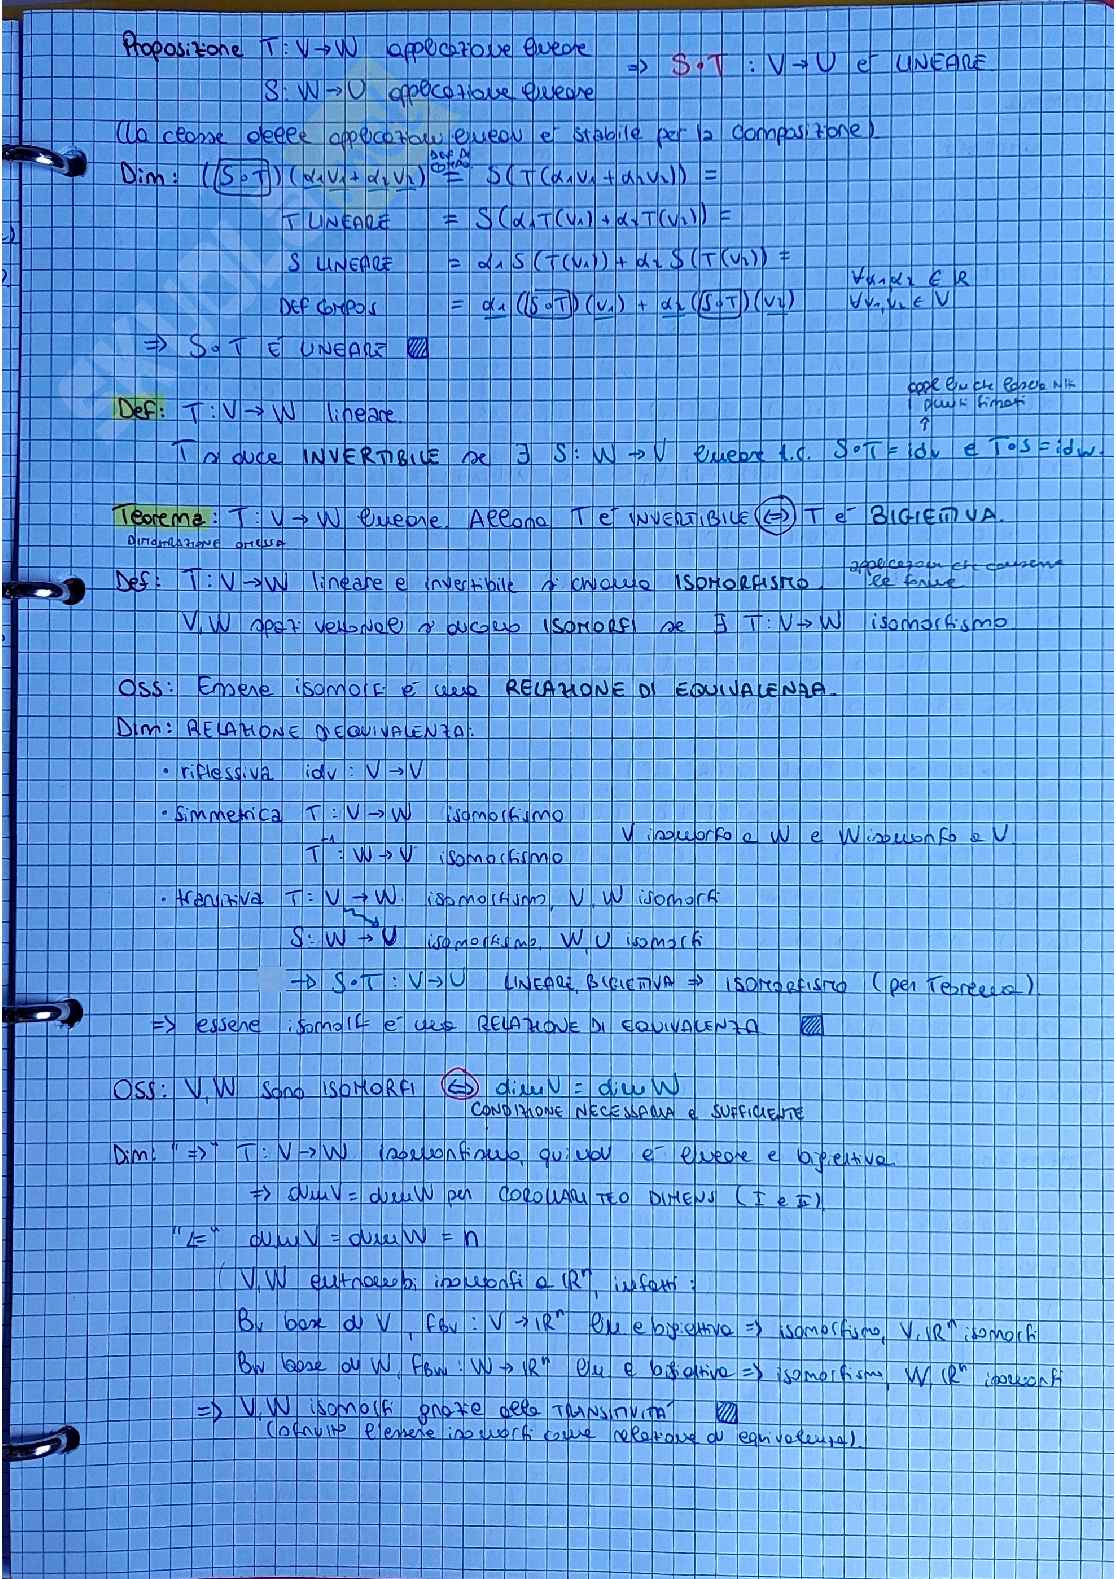 Proposizione T: V→W applicazione lineare
S: W→U applicazione lineare ⇒ S∘T : V→U è LINEARE
(la classe delle applicazioni lineari è stabile per la composizione)
Dim: (S∘T)(α₁v₁+α₂v₂) = S(T(α₁v₁+α₂v₂)) =
T LINEARE = S(α₁T(v₁)+α₂T(v₂)) =
S LINEARE = α₁S(T(v₁))+α₂S(T(v₂)) =
DEF COMPOS = α₁(S∘T)(v₁) + α₂(S∘T)(v₂) ∀α₁,α₂ ∈ R
∀v₁,v₂ ∈ V
⇒ S∘T È LINEARE
Def: T: V→W lineare.
T si dice INVERTIBILE se ∃ S: W→V lineare t.c. S∘T = idv e T∘S = idw.
Teorema: T: V→W lineare. Allora T è INVERTIBILE ⇔ T è BIGIETTIVA.
DIMOSTRAZIONE OMESSA
Def: T: V→W lineare e invertibile si chiama ISOMORFISMO. applicazioni che conservano
le forme
V,W spazi vettoriali si dicono ISOMORFI se ∃ T: V→W isomorfismo
Oss: Essere isomorfi è una RELAZIONE DI EQUIVALENZA.
Dim: RELAZIONE D'EQUIVALENZA:
• riflessiva idv : V→V
• simmetrica T : V→W isomorfismo
V isomorfo a W e W isomorfo a V
T⁻¹ : W→V isomorfismo
• transitiva T: V→W isomorfismo, V,W isomorfi
S: W→U isomorfismo, W,U isomorfi
⇒ S∘T : V→U LINEARE, BIGIETTIVA ⇒ ISOMORFISMO (per Teorema)
⇒ essere isomorfi è una RELAZIONE DI EQUIVALENZA
Oss: V,W sono ISOMORFI ⇔ dimV = dimW
CONDIZIONE NECESSARIA e SUFFICIENTE
Dim: "⇒" T: V→W isomorfismo, quindi è lineare e bigiettiva
⇒ dimV = dimW per COROLLARI TEO DIMENS (I e II)
"⇐" dimV = dimW = n
V,W entrambi isomorfi a ℝⁿ, infatti:
Bv base di V, fBv : V→ℝⁿ lin e bigiettiva ⇒ isomorfismo, V,ℝⁿ isomorfi
Bw base di W, fBw : W→ℝⁿ lin e bigiettiva ⇒ isomorfismo, W,ℝⁿ isomorfi
⇒ V,W isomorfi grazie alla TRANSITIVITÀ
(sfrutto l'essere isomorfi come relazione di equivalenza)